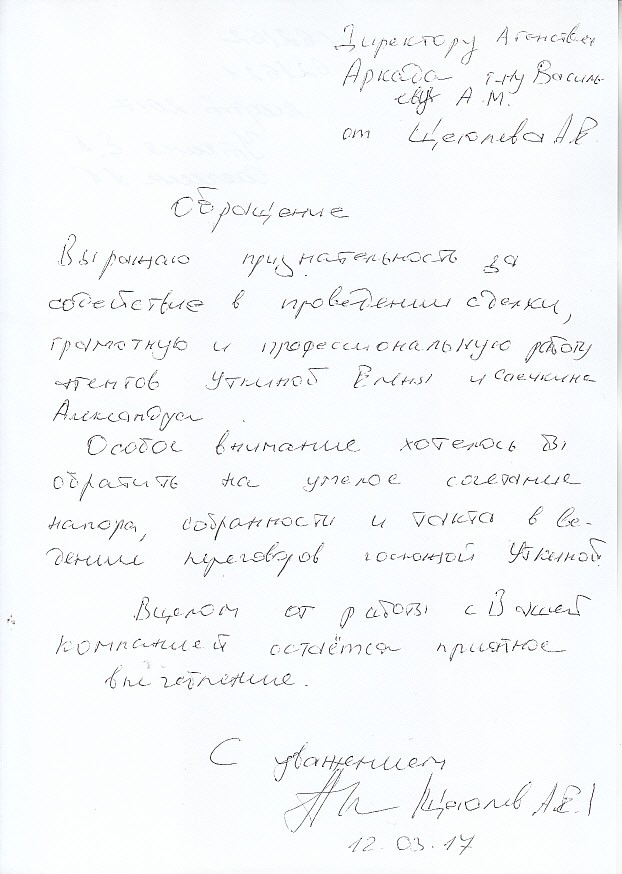 Директору Агенства
Аркада г-ну Василь
еву А.М.
от Щеголева А.Е.
Обращение
Выражаю признательность за
содействие в проведении сделки,
грамотную и профессиональную работу
агентов Уткиной Елены и Саечкина
Александра.
Особое внимание хотелось бы
обратить на умелое сочетание
напора, собранности и такта в ве-
дении переговоров госпожой Уткиной
Вцелом от работы с Вашей
компанией остаётся приятное
впечатление.
С уважением
Щеголев А.Е.
12.03.17